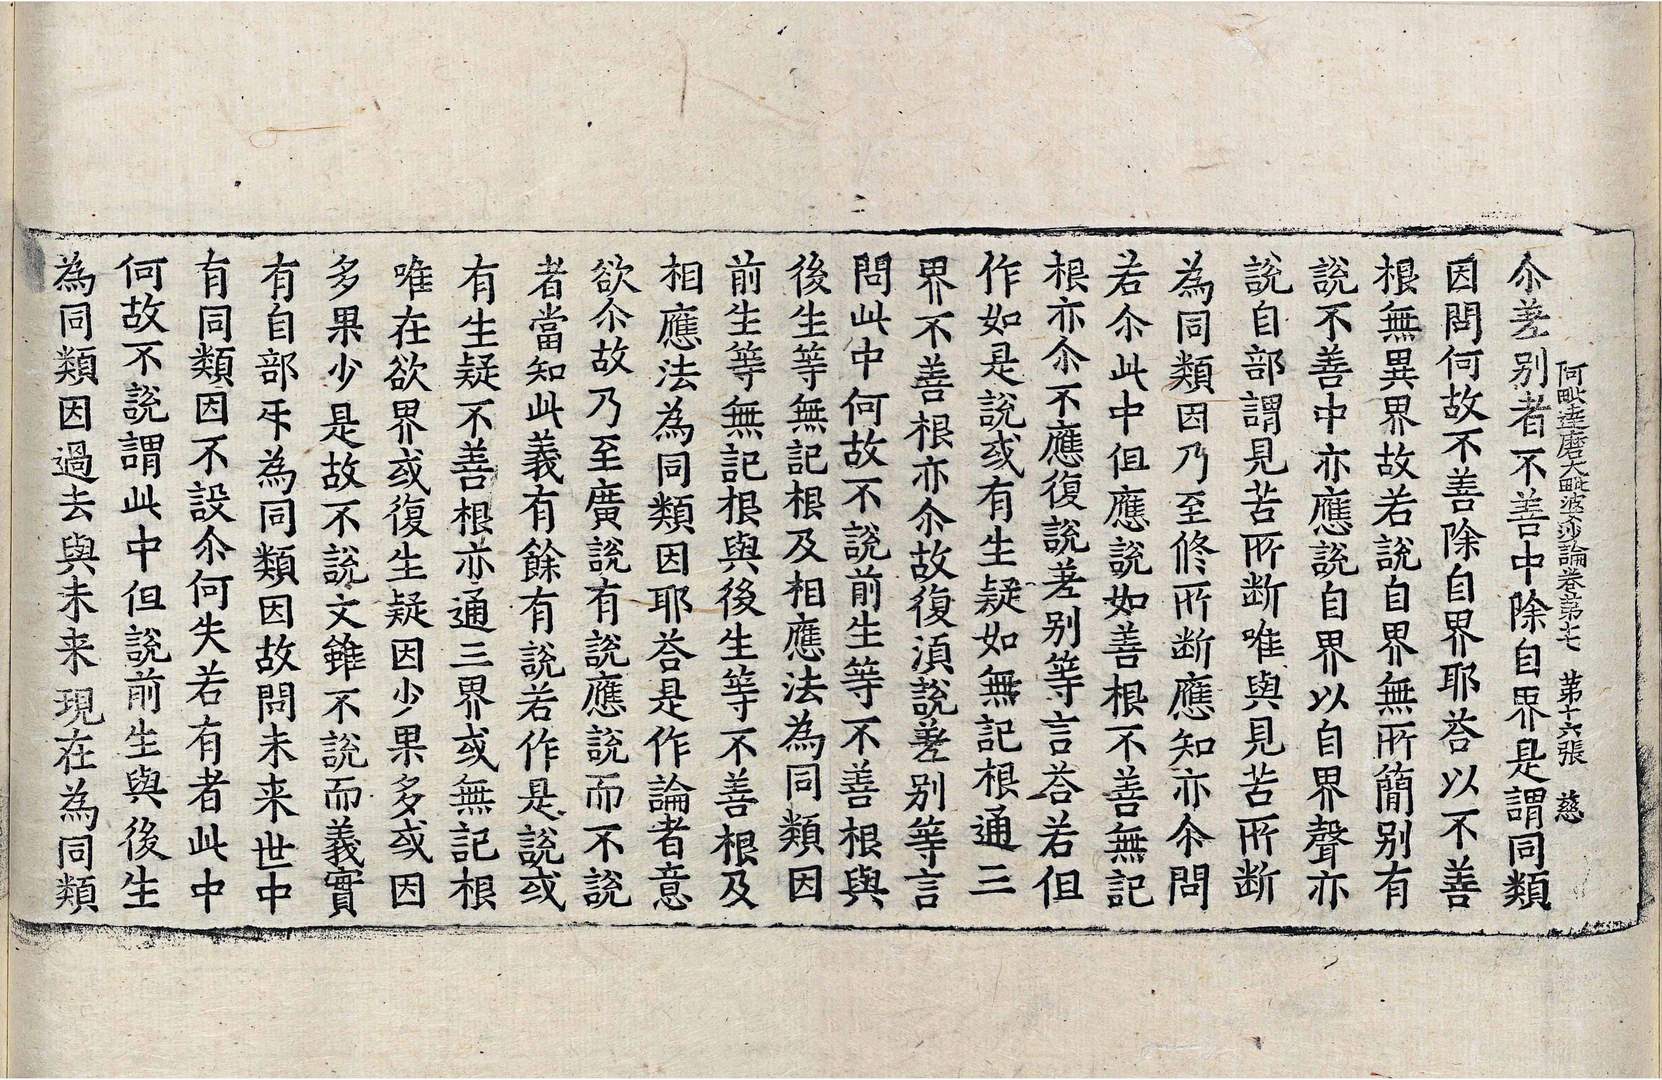 阿毗達磨大毗婆沙論卷第十七　第十六張　慈
尒差别者不善中除自界是謂同類
因問何故不善除自界耶荅以不善
根無異界故若說自界無所簡别有
說不善中亦應說自界以自界聲亦
說自部謂見苦所斷唯與見苦所斷
為同類因乃至修所斷應知亦尒問
若尒此中但應說如善根不善無記
根亦尒不應復說差别等言荅若但
作如是說或有生疑如無記根通三
界不善根亦尒故復湏說差别等言
問此中何故不說前生等不善根與
後生等無記根及相應法為同類因
前生等無記根與後生等不善根及
相應法為同類因耶荅是作論者意
欲尒故乃至廣說有說應說而不說
者當知此義有餘有說若作是說或
有生疑不善根亦通三界或無記根
唯在欲界或復生疑因少果多或因
多果少是故不說文雖不說而義實
有自部㸦為同類因故問未来世中
有同類因不設尒何失若有者此中
何故不說謂此中但說前生與後生
為同類因過去與未来現在為同類